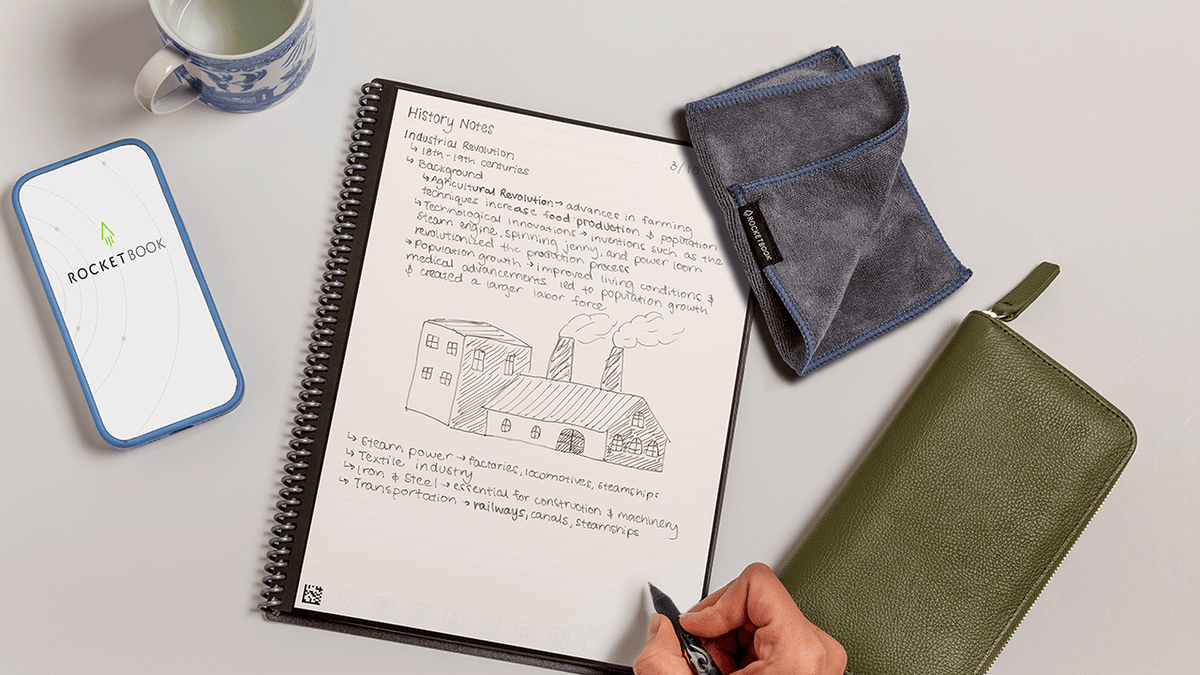 History Notes
3/10
Industrial Revolution
↳ 18th-19th centuries
↳ Background
↳ Agricultural Revolution → advances in farming
techniques increase food production & population
↳ Technological innovations → inventions such as the
steam engine, spinning jenny, and power loom
revolutionized the production process
↳ Population growth → improved living conditions &
medical advancements led to population growth
& created a larger labor force
↳ Steam power → factories, locomotives, steamships
↳ Textile industry
↳ Iron & Steel → essential for construction & machinery
↳ Transportation → railways, canals, steamships
ROCKETBOOK
ROCKETBOOK